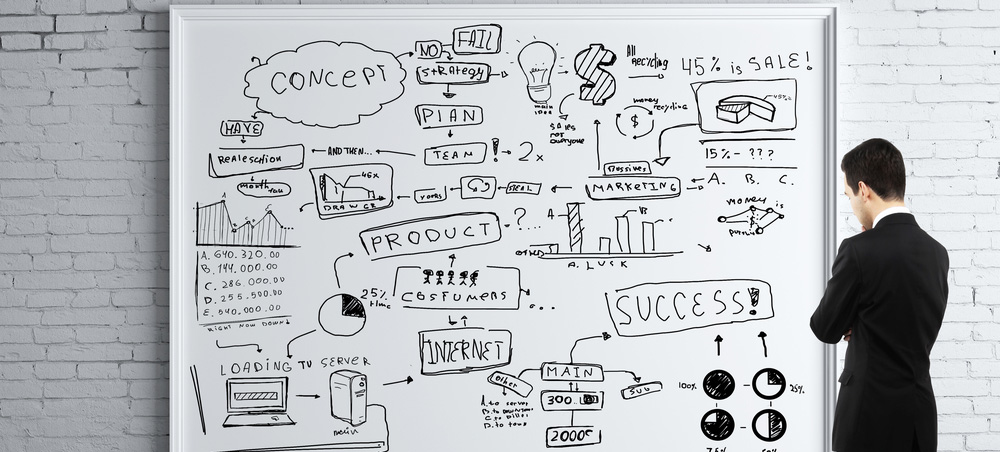 NO
FAIL
CONCEPT
STRATEGY
All
RECYCLING
45% is SALE!
main
idea
45%
PLAN
SALES
not
everyone
money
recycling
$
HAVE
15% - ???
REALESCTION
AND THEN...
TEAM
! 2x
A. B. C.
month
you
46x
DRAW
MARKETING
money is
A
B
PRODUCT
?...
OTHER
A. LUCK
A. 640.320.00
B. 144.000.00
C. 286.000.00
D. 255.500.00
E. 540.000.00
RIGHT NOW DOWN
25%
time
COSTUMERS
...
SUCCESS!
INTERNET
LOADING TO SERVER
main
MAIN
Other
SUB
A. to server
300..
2000
100%
25%
75%
50%